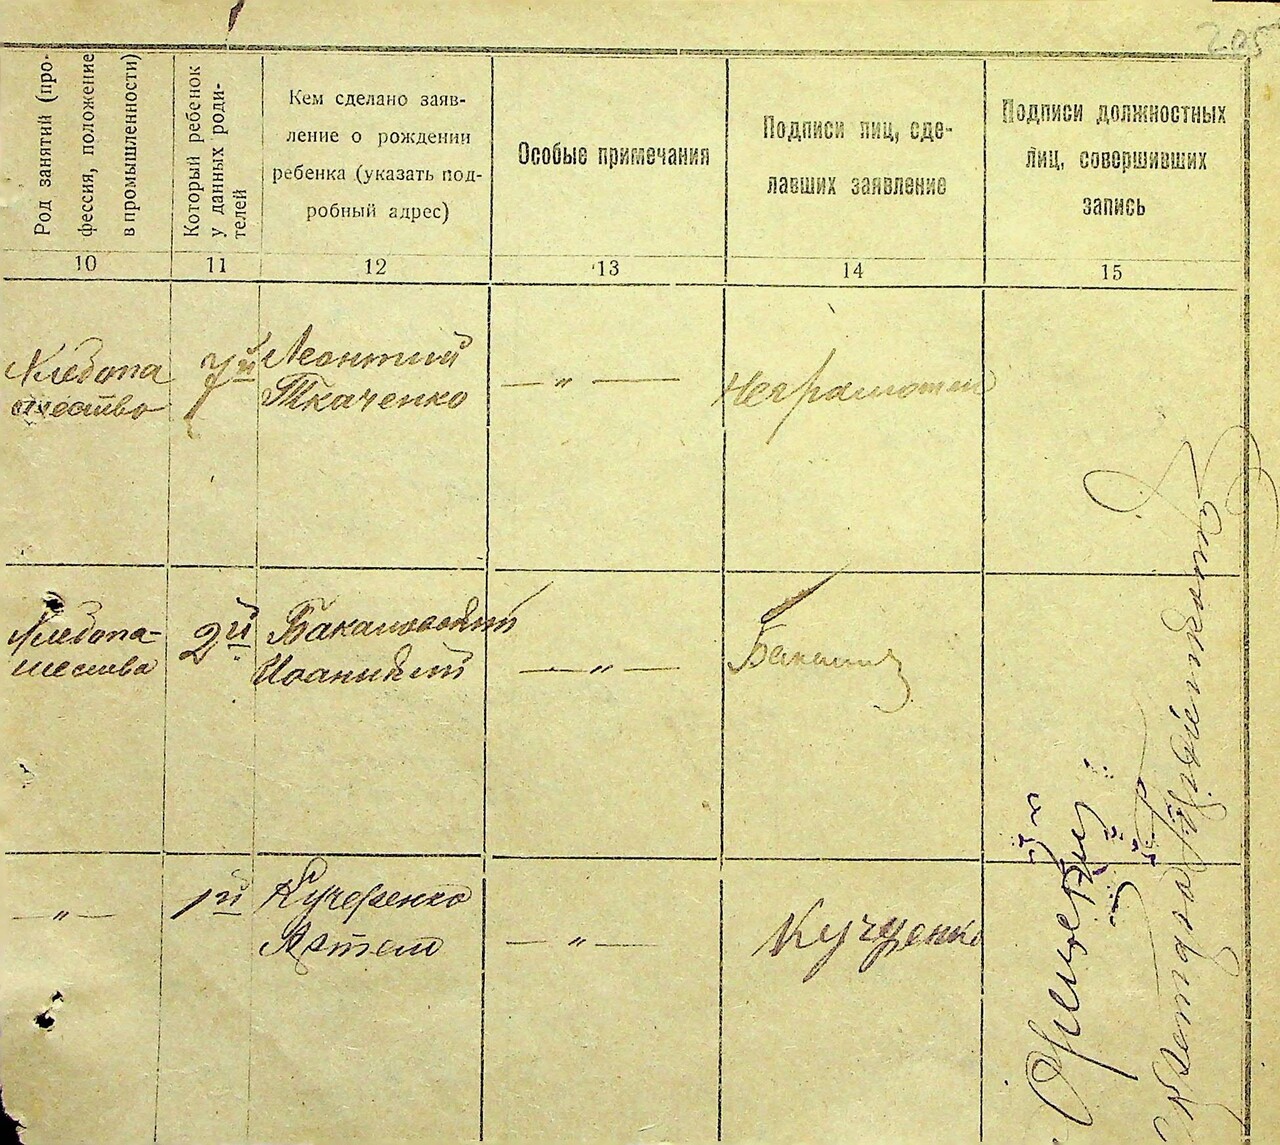 205
Род занятий (про-
фессия, положение
в промышленности)
Который ребенок
у данных роди-
телей
Кем сделано заяв-
ление о рождении
ребенка (указать под-
робный адрес)
Особые примечания
Подписи лиц, сде-
лавших заявление
Подписи должностных
лиц, совершивших
запись
10
11
12
13
14
15
Хлебопа
шество
7й
Леонтий
Ткаченко
— „ —
Неграмотный
Хлебопа-
шества
2й
Бакановский
Иоаникий
— „ —
— „ —
1й
Кучеренко
Артем
— „ —
Кучеренко